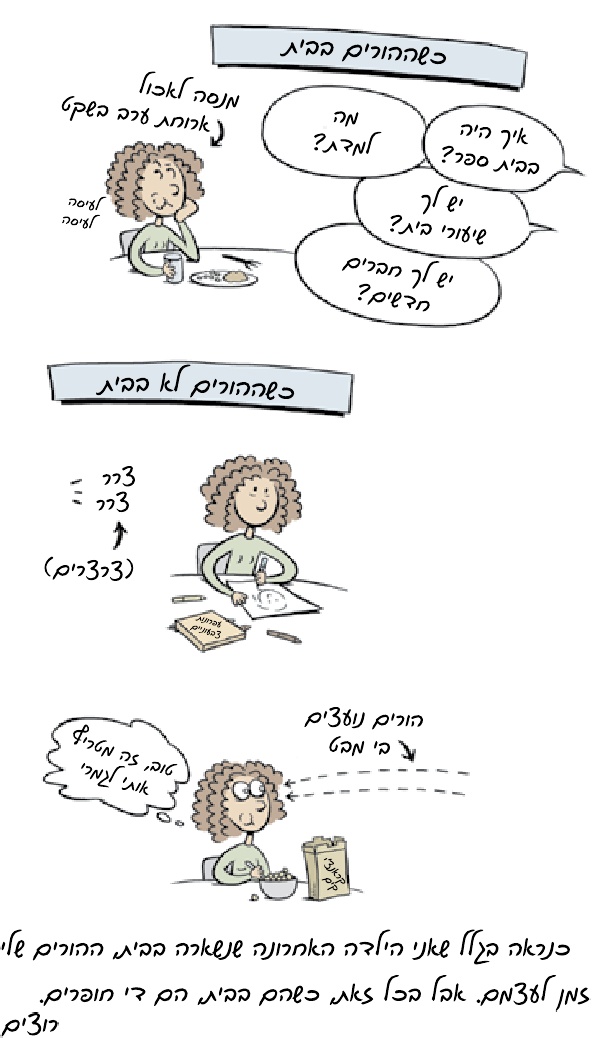 כשההורים בבית
מנסה לאכול
ארוחת ערב בשקט
מה
למדת?
איך היה
בבית ספר?
יש לך
שיעורי בית?
יש לך חברים
חדשים?
לעיסה
לעיסה
כשההורים לא בבית
צררר
צררר
(צרצרים)
עפרונות
צבעוניים
הורים נועצים
בי מבט
טוב, זה מטריף
אותי לגמרי
קראנצ'י
קלם
כנראה בגלל שאני הילדה האחרונה שנשארה בבית, ההורים שלי
זמן לעצמם. אבל בכל זאת, כשהם בבית, הם די חופרים.
רוצים